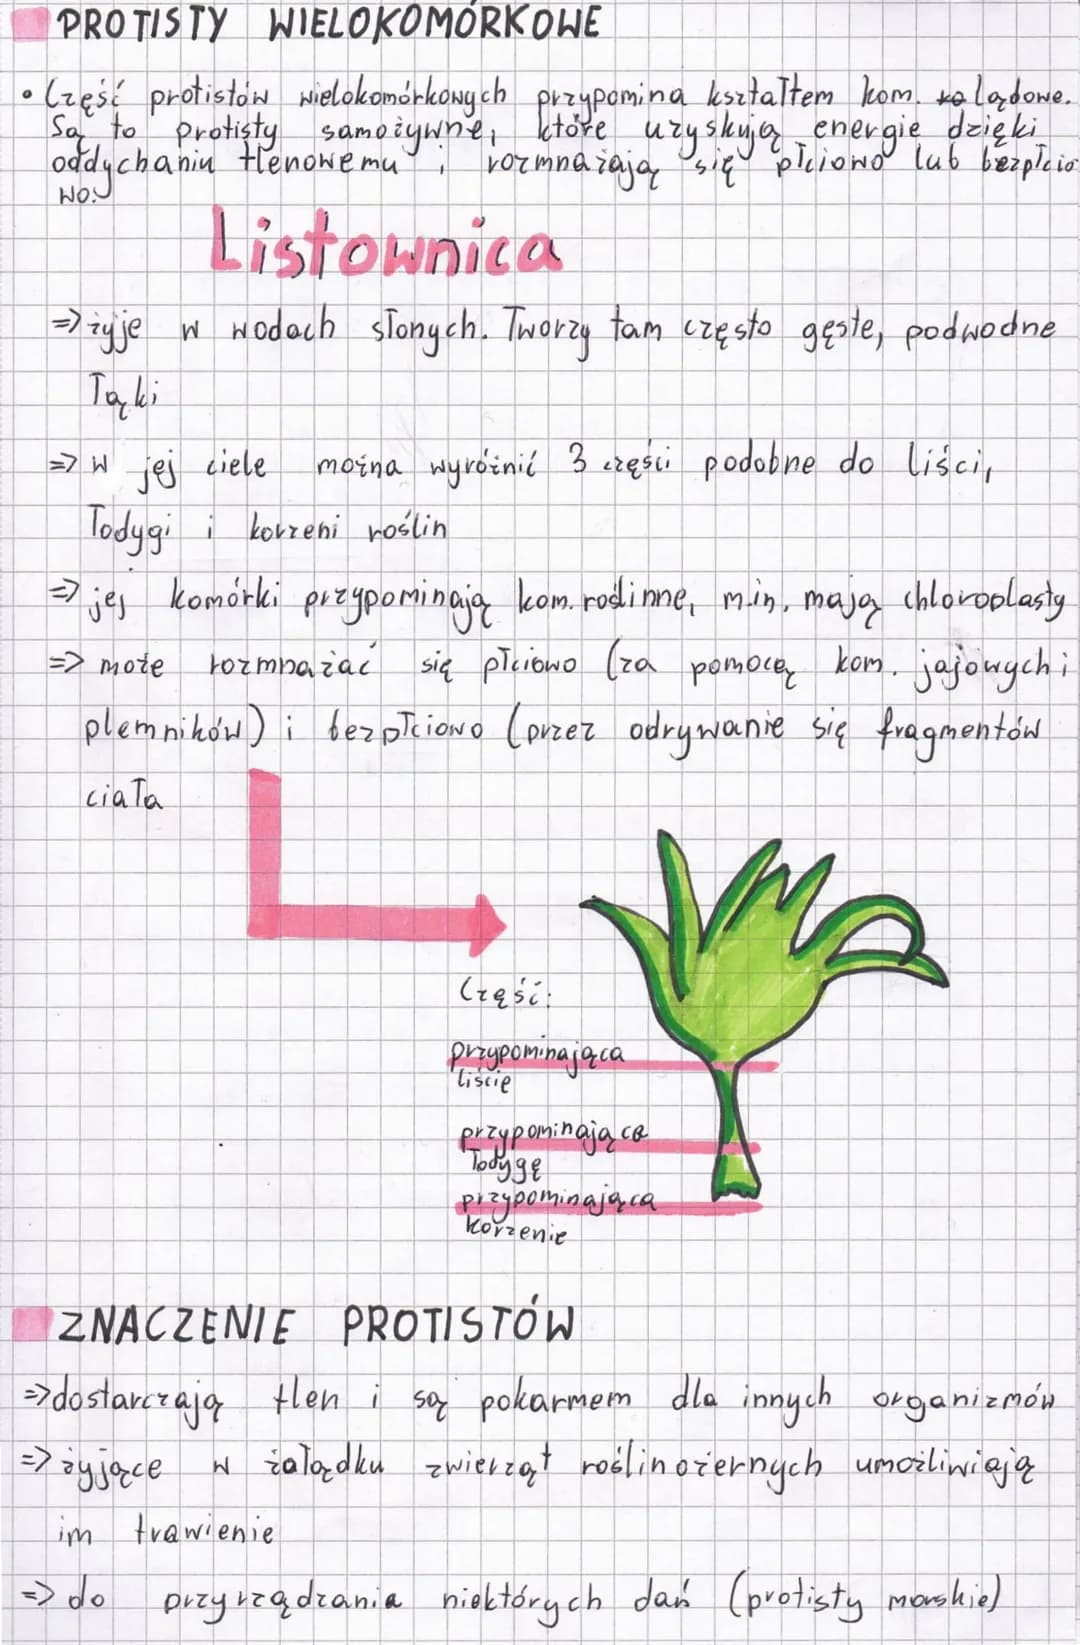 PROTISTY WIELOKOMÓRKOWE
• Część protistów wielokomórkowych przypomina kształtem kom. lądowe.
Są to protisty samożywne, które uzyskują energię dzięki
oddychaniu tlenowemu i rozmnażają się płciowo lub bezpłcio
wo.
Listownica
=> żyje w wodach słonych. Tworzy tam często gęste, podwodne
łąki
=> w jej ciele można wyróżnić 3 części podobne do liści,
łodygi i korzeni roślin
=> jej komórki przypominają kom. roślinne, m.in. mają chloroplasty
=> może rozmnażać się płciowo (za pomocą kom. jajowych i
plemników) i bezpłciowo (przez odrywanie się fragmentów
ciała
Część:
przypominająca
liście
przypominająca
łodygę
przypominająca
korzenie
ZNACZENIE PROTISTÓW
=> dostarczają tlen i są pokarmem dla innych organizmów
=> żyjące w żołądku zwierząt roślinożernych umożliwiają
im trawienie
=> do przyrządzania niektórych dań (protisty morskie)